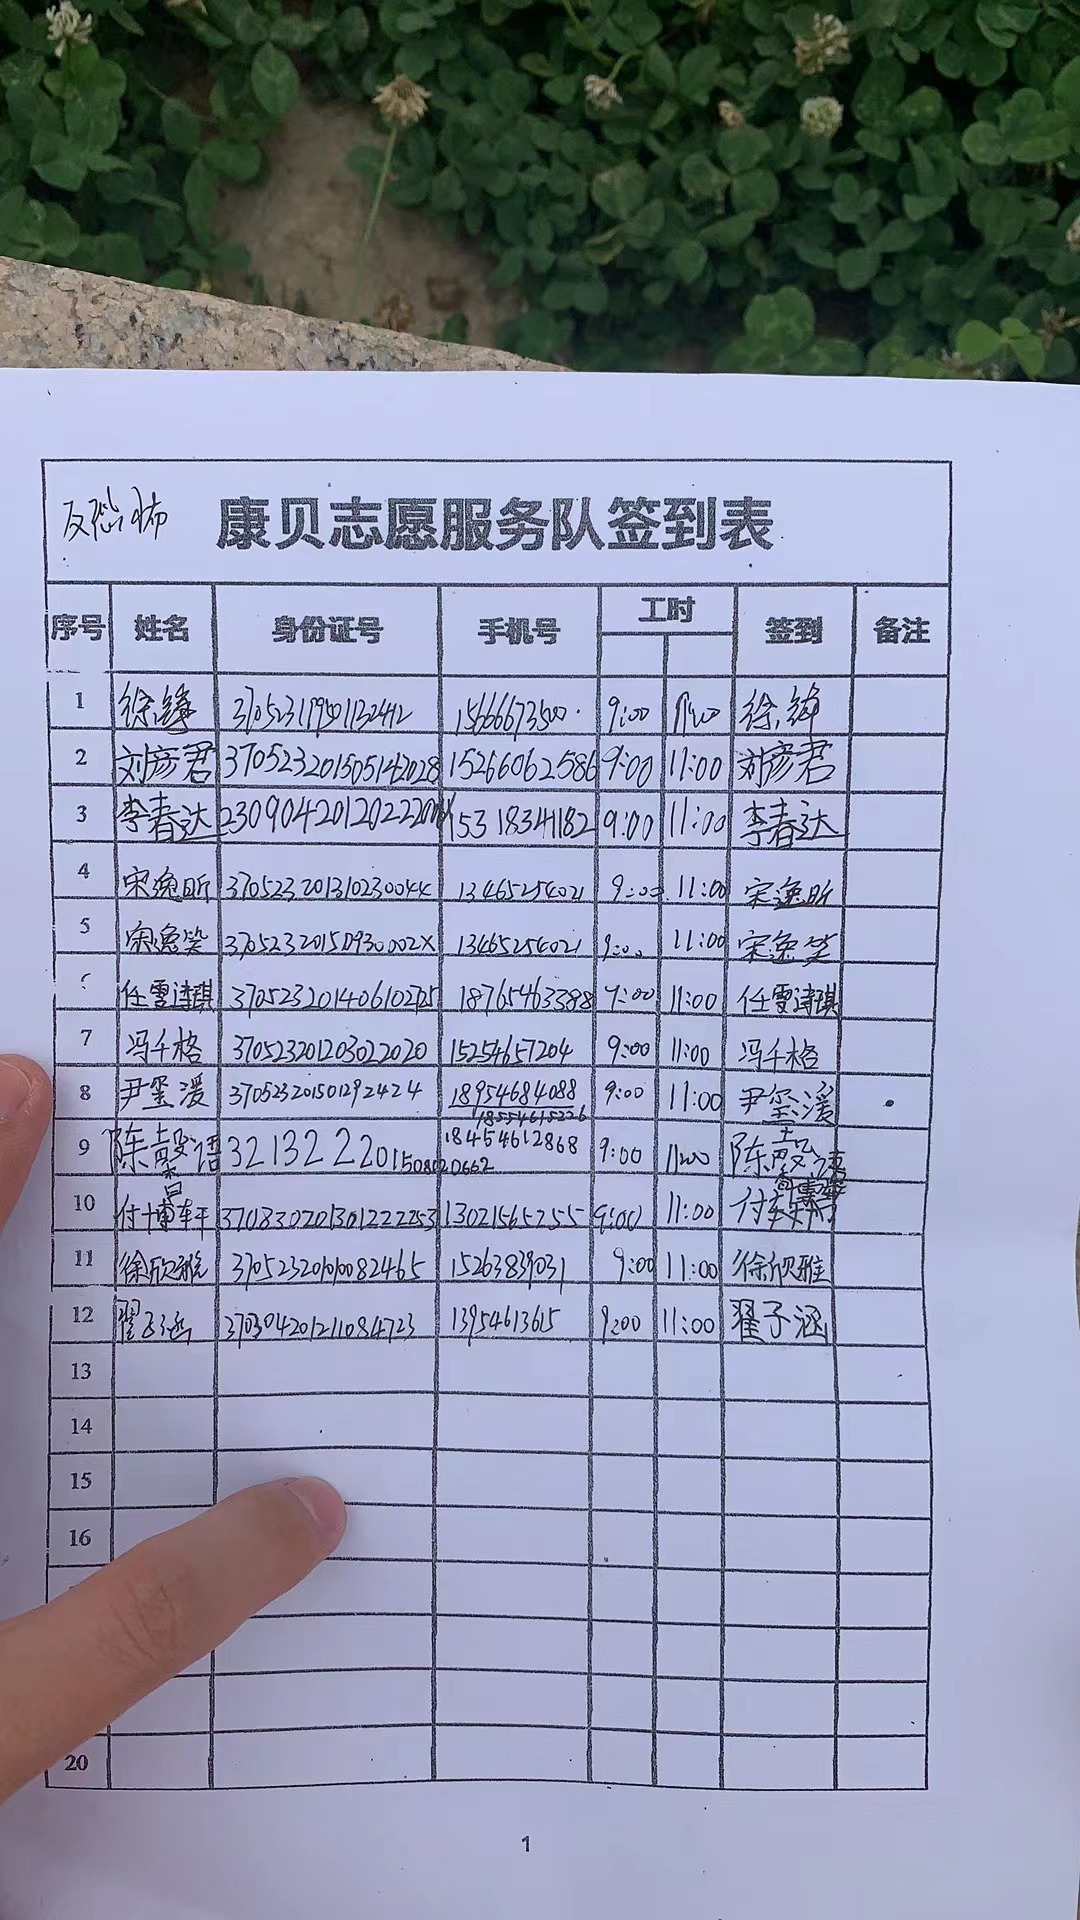 反恐怖
康贝志愿服务队签到表
序号 姓名 身份证号 手机号 工时 签到 备注
1 徐 9:00 徐
2 刘彦君 370523201505142028 15266062586 9:00 11:00 刘彦君
3 李春达 15318341182 9:00 11:00 李春达
4 宋逸昕 370523201310230044 13465254021 9:00 11:00 宋逸昕
5 宋逸笑 37052320150930002X 13465254021 9:00 11:00 宋逸笑
任雪诗琪 370523201406102725 18765463388 9:00 11:00 任雪诗琪
7 冯千格 370523201203022020 15254657204 9:00 11:00 冯千格
8 尹玺湲 370523201501292424 18954684088 9:00 11:00 尹玺湲
18554615226
9 陈馨语 321322201508020662 18454612868 9:00 11:00 陈
10 付博轩 370830201301222253 13021565255 9:00 11:00 付
11 徐欣雅 370523201010082465 15263839031 9:00 11:00 徐欣雅
12 翟子涵 370304201211084723 13954613615 9:00 11:00 翟子涵
13
14
15
16
20
1